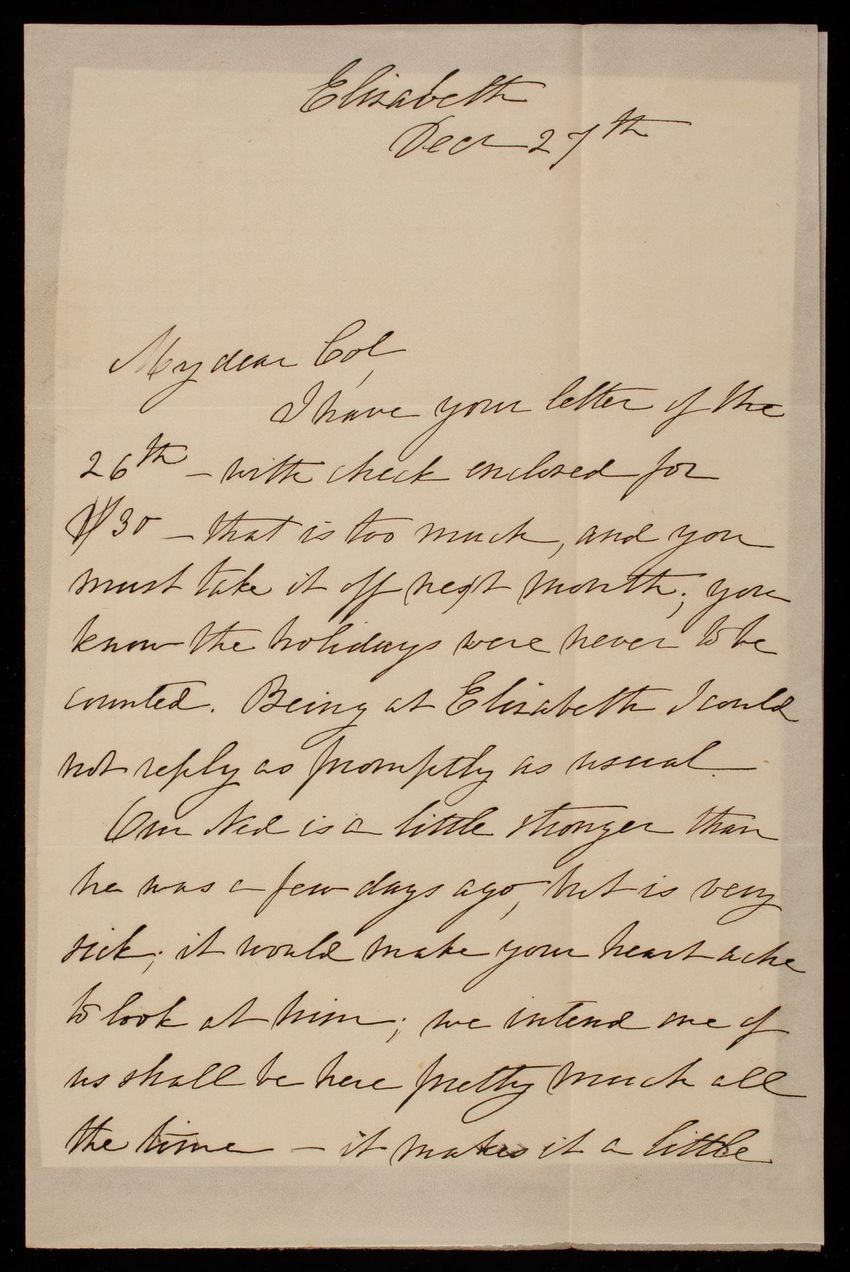 Elizabeth
Decr 27th
My dear Col,
I have your letter of the
26th – with check enclosed for
$30 – that is too much, and you
must take it off next month; you
know the holidays were never to be
counted. Being at Elizabeth I could
not reply as promptly as usual.
Our Ned is a little stronger than
he was a few days ago, but is very
sick; it would make your heart ache
to look at him; we intend one of
us shall be here pretty much all
the time – it makes it a little